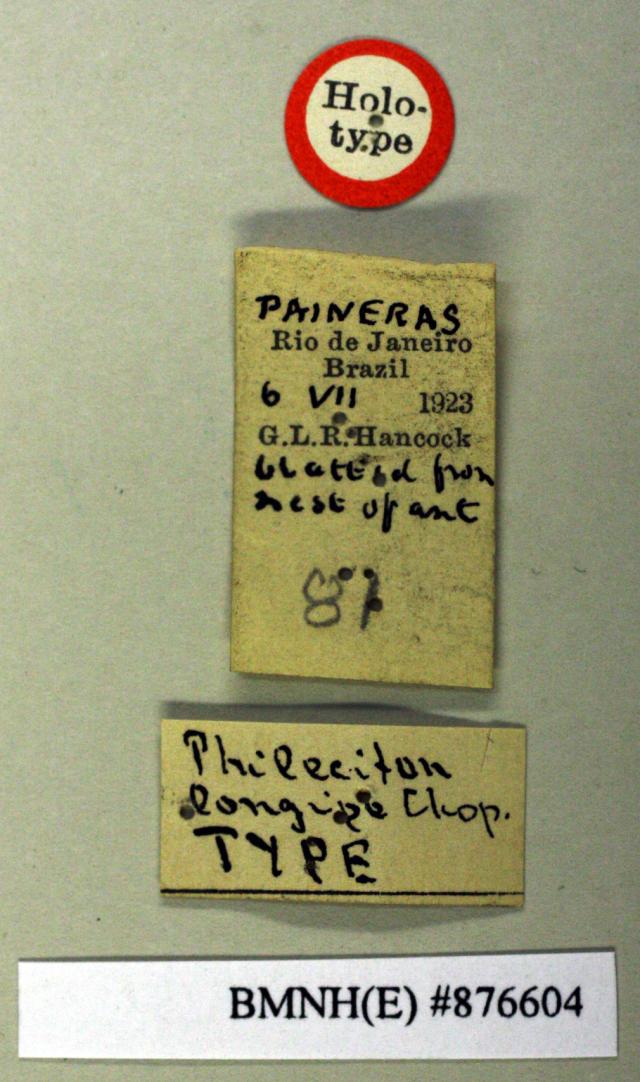 Holo-
type
PAINERAS
Rio de Janeiro
Brazil
6 VII 1923
G.L.R. Hancock
blattid from
nest of ant
87
Phileciton
longipe Chop.
TYPE
BMNH(E) #876604